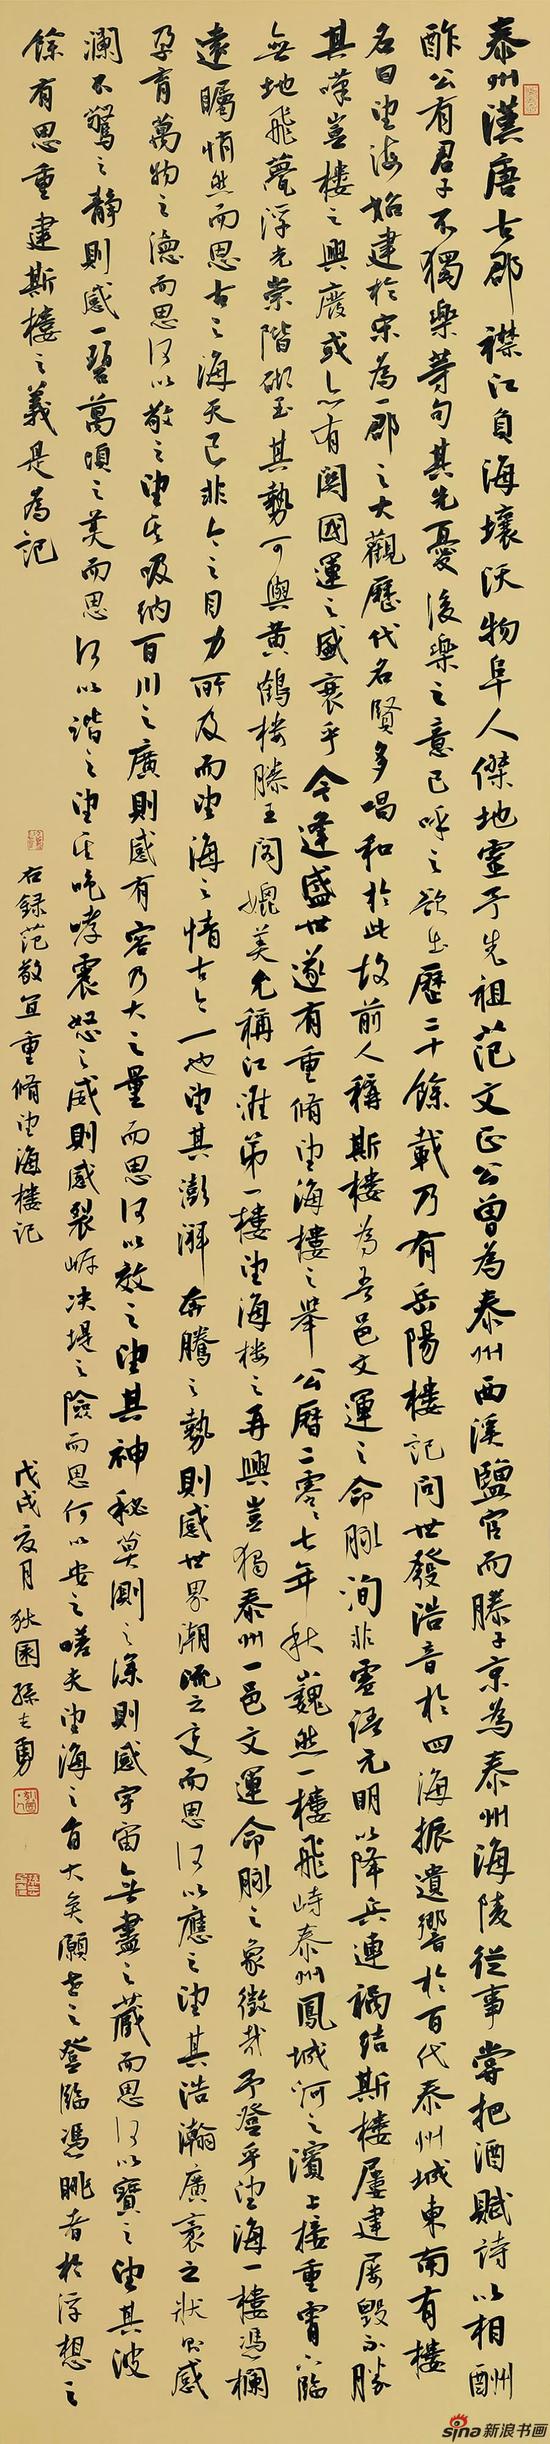 泰州漢唐古郡襟江負海壤沃物阜人傑地靈予先祖范文正公曾為泰州西溪鹽官而滕子京為泰州海陵從事嘗把酒賦詩以相酬
酢公有君子不獨樂等句其先憂後樂之意已呼之欲出歷二十餘載乃有岳陽樓記問世發浩音於四海振遺響於百代泰州城東南有樓
名曰望海始建於宋為一郡之大觀歷代名賢多唱和於此故前人稱斯樓為吾邑文運之命脈洵非虛語元明以降兵連禍結斯樓屢建屢毀不勝
其嘆豈樓之興廢或亦有關國運之盛衰乎今逢盛世遂有重脩望海樓之舉公曆二零零七年秋巍然一樓飛峙泰州鳳城河之濱上接重霄下臨
無地飛甍浮光崇階砌玉其勢可與黃鶴樓滕王閣媲美允稱江淮第一樓望海樓之再興豈獨泰州一邑文運命脈之象徵哉予登乎望海一樓馮欄
遠矚悄然而思古之海天已非今之目力所及而望海之情古今一也望其澎湃奔騰之勢則感世界潮流之變而思何以應之望其浩瀚廣袤之狀則感
孕育萬物之德而思何以敬之望其吸納百川之廣則感有容乃大之量而思何以效之望其神秘莫測之深則感宇宙無盡之藏而思何以寶之望其波
瀾不驚之靜則感一碧萬頃之美而思何以諧之望其咆哮震怒之威則感裂岸決堤之險而思何以安之嗟夫望海之旨大矣願世之登臨馮眺者於浮想之
餘有思重建斯樓之義是為記
右錄范敬宜重脩望海樓記
戊戌夏月狄園孫志勇
sina新浪书画